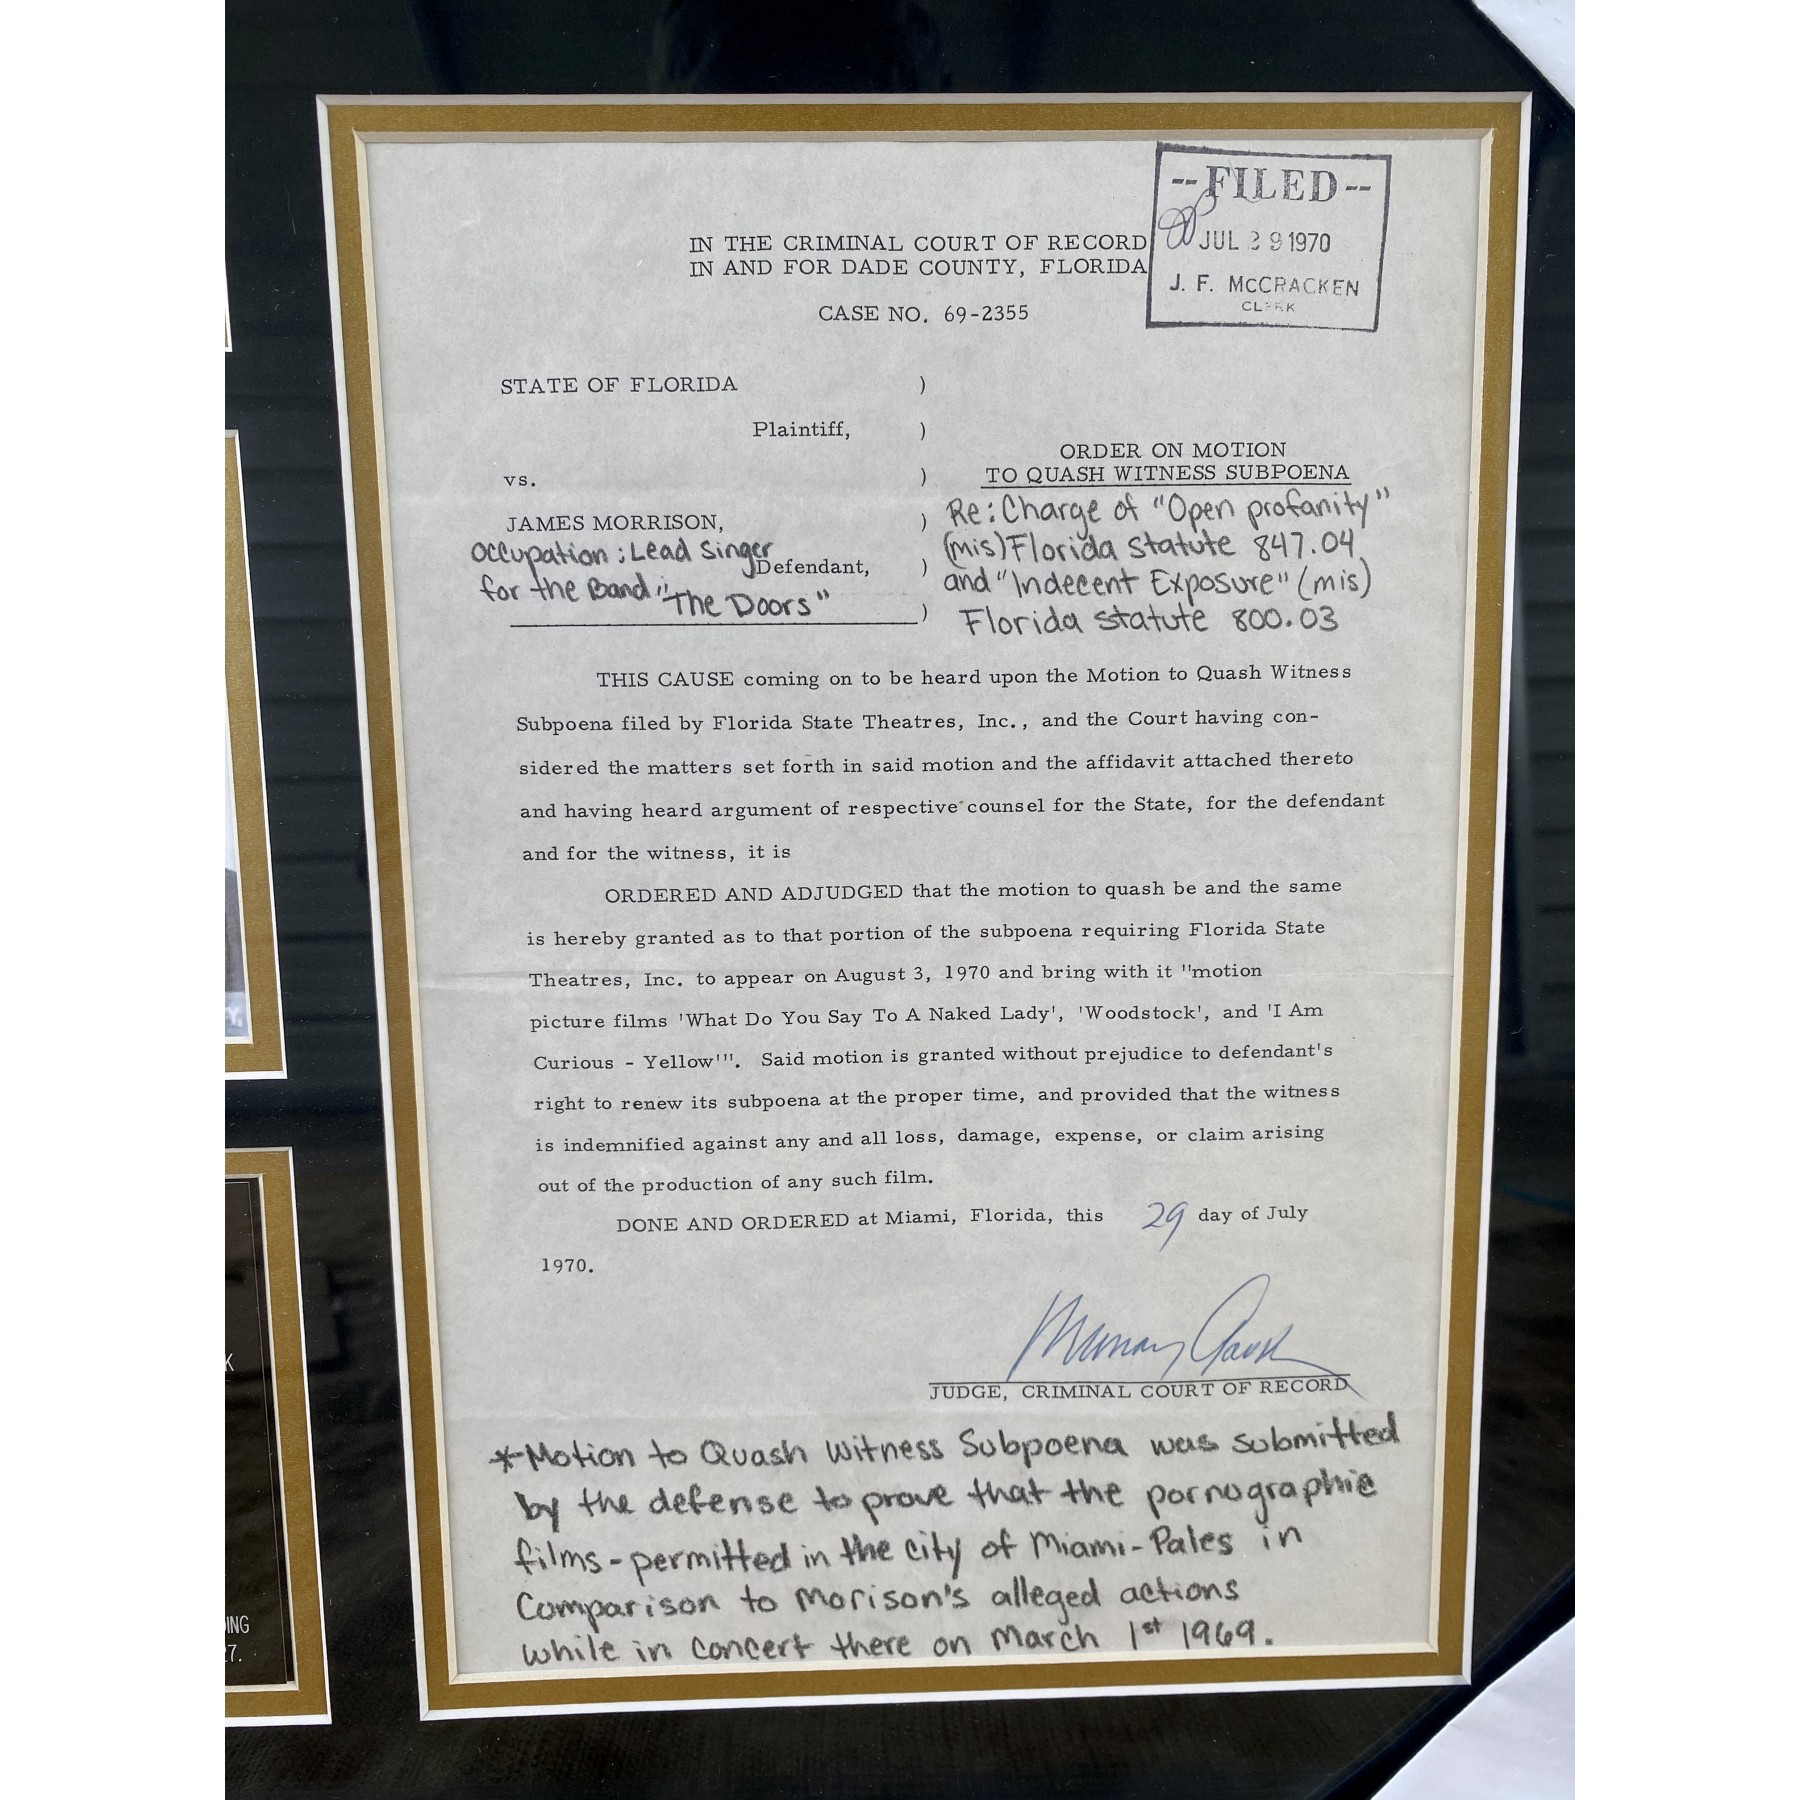 --FILED--
JUL 29 1970
J. F. McCRACKEN
CLERK
IN THE CRIMINAL COURT OF RECORD
IN AND FOR DADE COUNTY, FLORIDA
CASE NO. 69-2355
STATE OF FLORIDA )
Plaintiff, )
ORDER ON MOTION
vs. ) TO QUASH WITNESS SUBPOENA
JAMES MORRISON, ) Re: Charge of "Open profanity"
Occupation: Lead Singer (mis) Florida Statute 847.04
Defendant, ) and "Indecent Exposure" (mis)
for the Band: "The Doors" ) Florida Statute 800.03
THIS CAUSE coming on to be heard upon the Motion to Quash Witness
Subpoena filed by Florida State Theatres, Inc., and the Court having con-
sidered the matters set forth in said motion and the affidavit attached thereto
and having heard argument of respective counsel for the State, for the defendant
and for the witness, it is
ORDERED AND ADJUDGED that the motion to quash be and the same
is hereby granted as to that portion of the subpoena requiring Florida State
Theatres, Inc. to appear on August 3, 1970 and bring with it "motion
picture films 'What Do You Say To A Naked Lady', 'Woodstock', and 'I Am
Curious - Yellow'". Said motion is granted without prejudice to defendant's
right to renew its subpoena at the proper time, and provided that the witness
is indemnified against any and all loss, damage, expense, or claim arising
out of the production of any such film.
DONE AND ORDERED at Miami, Florida, this 29 day of July
1970.
JUDGE, CRIMINAL COURT OF RECORD
*Motion to Quash Witness Subpoena was submitted
by the defense to prove that the pornographic
films - permitted in the city of Miami - Pales in
Comparison to Morison's alleged actions
while in concert there on March 1st 1969.
K
ING
27.